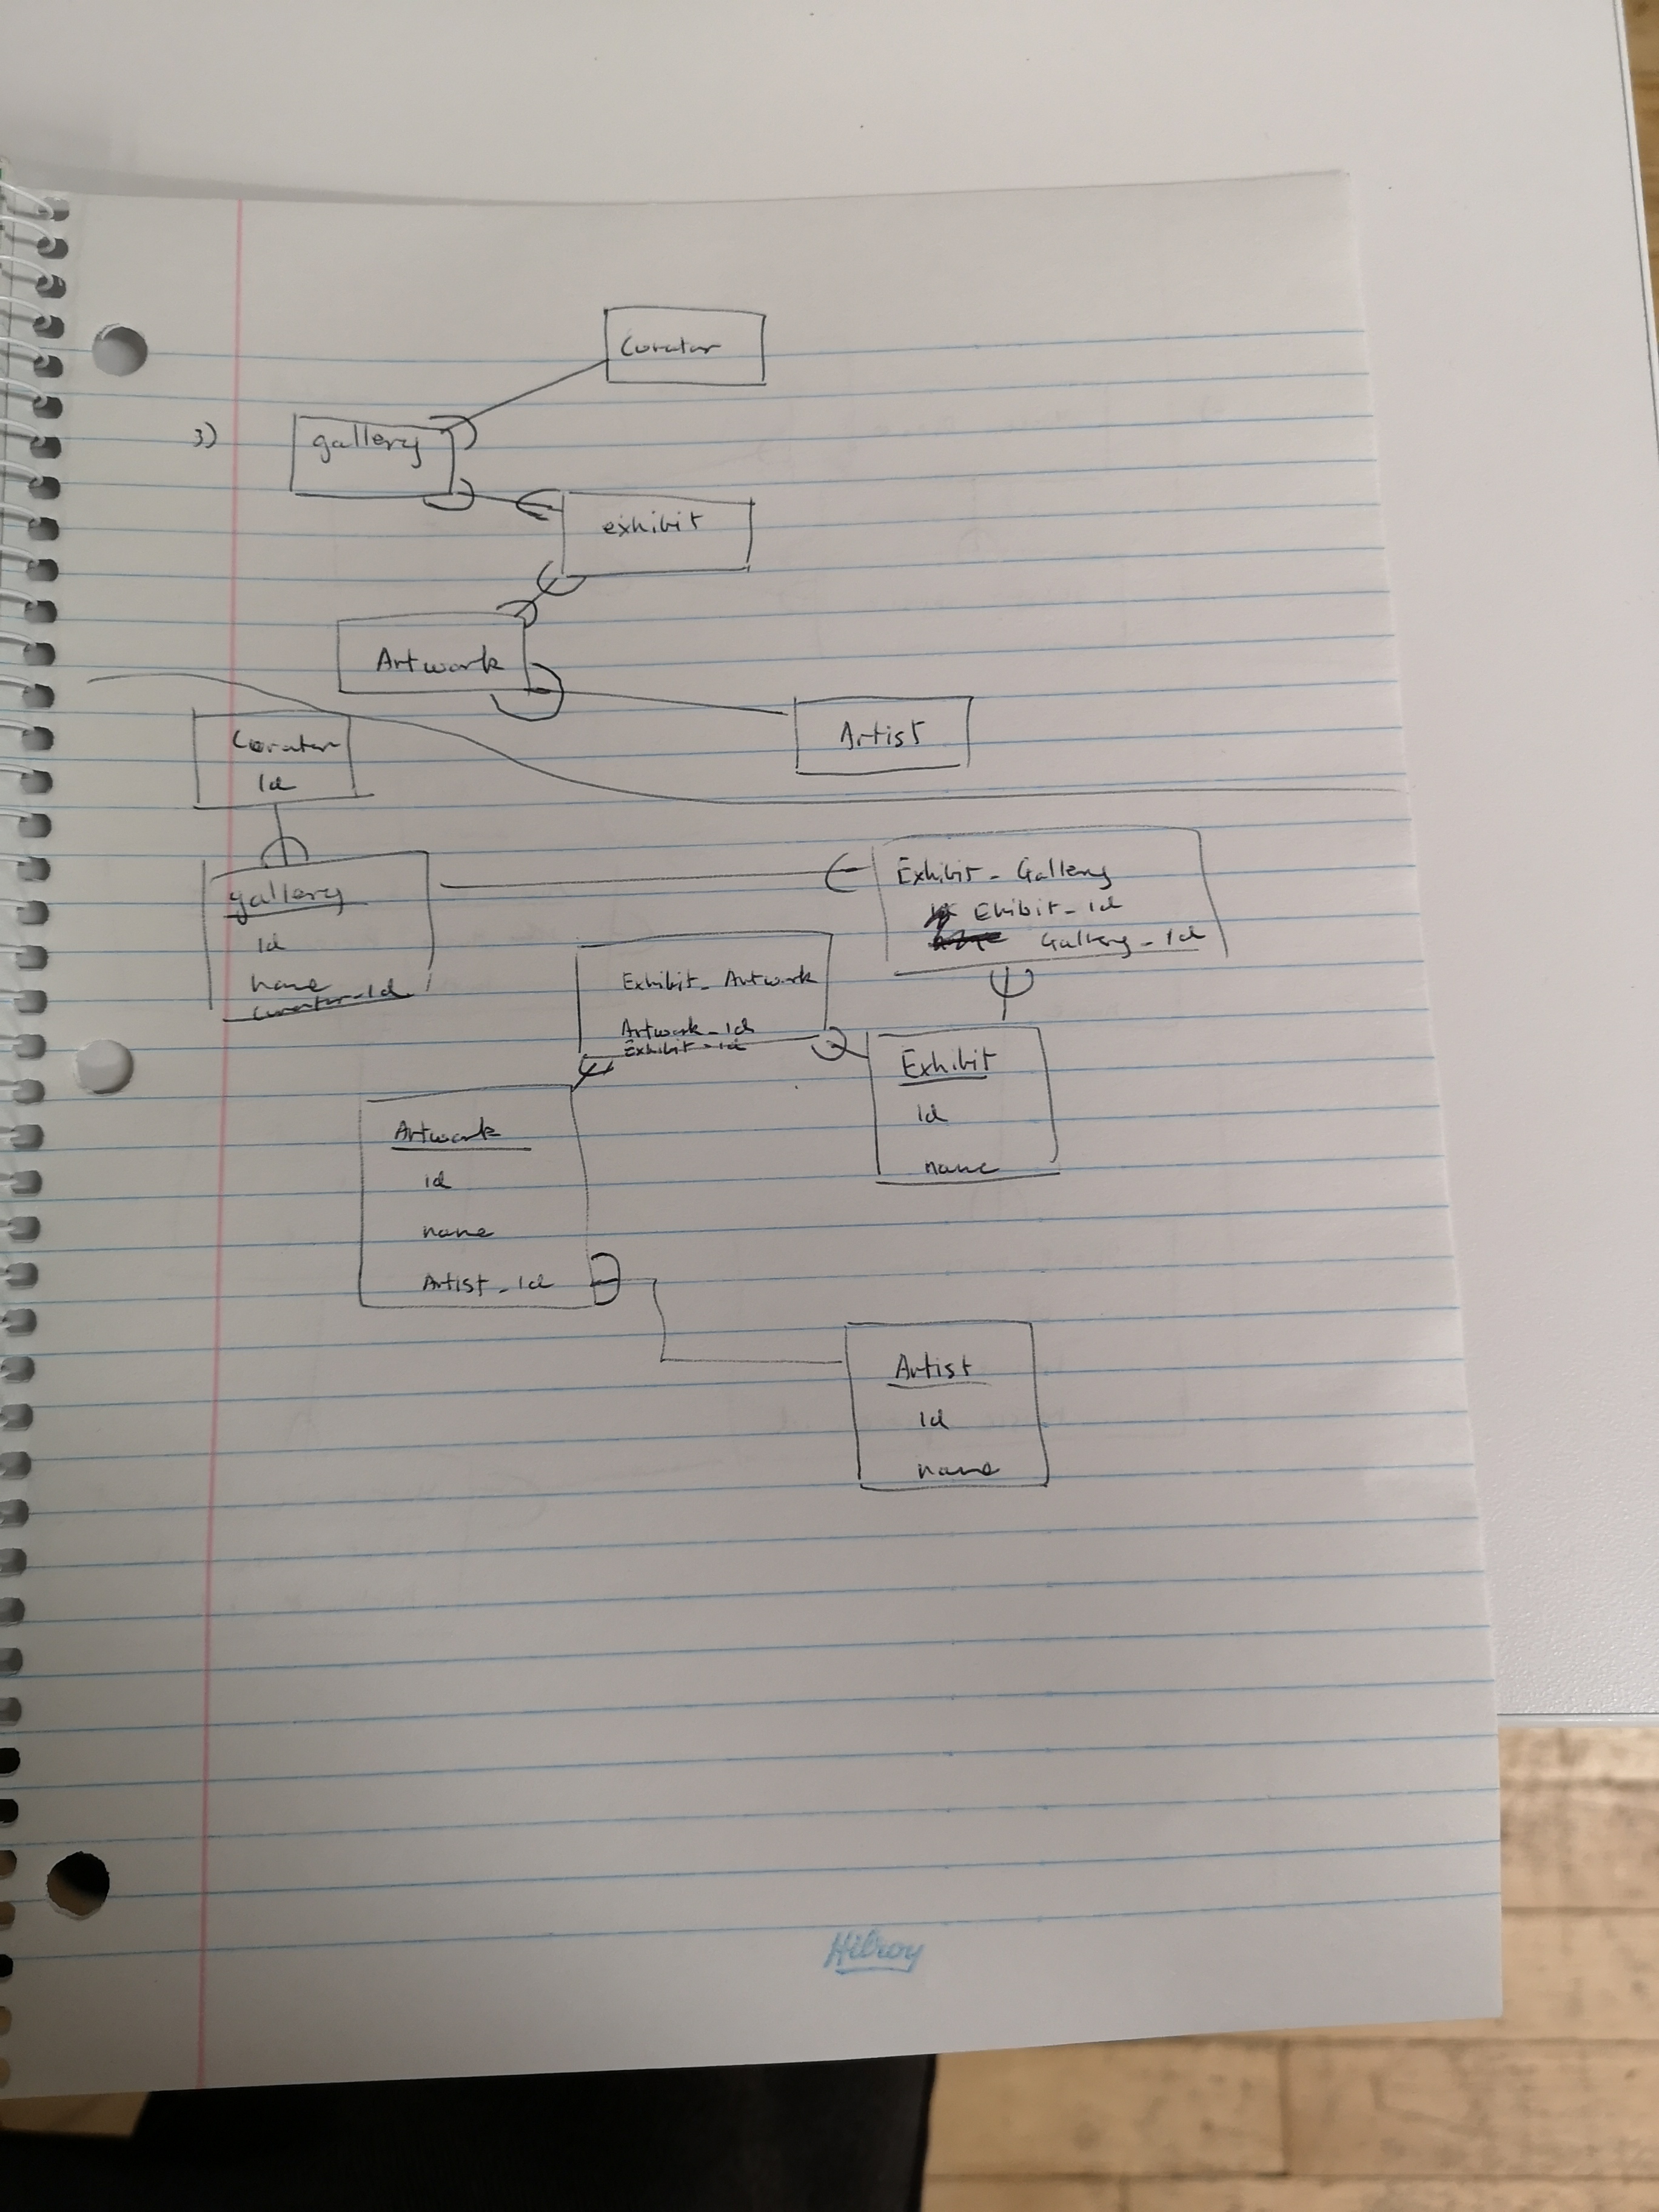 Curator
3)
gallery
exhibit
Artwork
Artist
Curator
Id
gallery
Id
name
Curator-Id
Exhibit - Gallery
Ehibit - Id
Gallery - Id
Exhibit - Artwork
Artwork - Id
Exhibit - Id
Exhibit
Id
name
Artwork
id
name
Artist - Id
Artist
Id
name
Hilroy